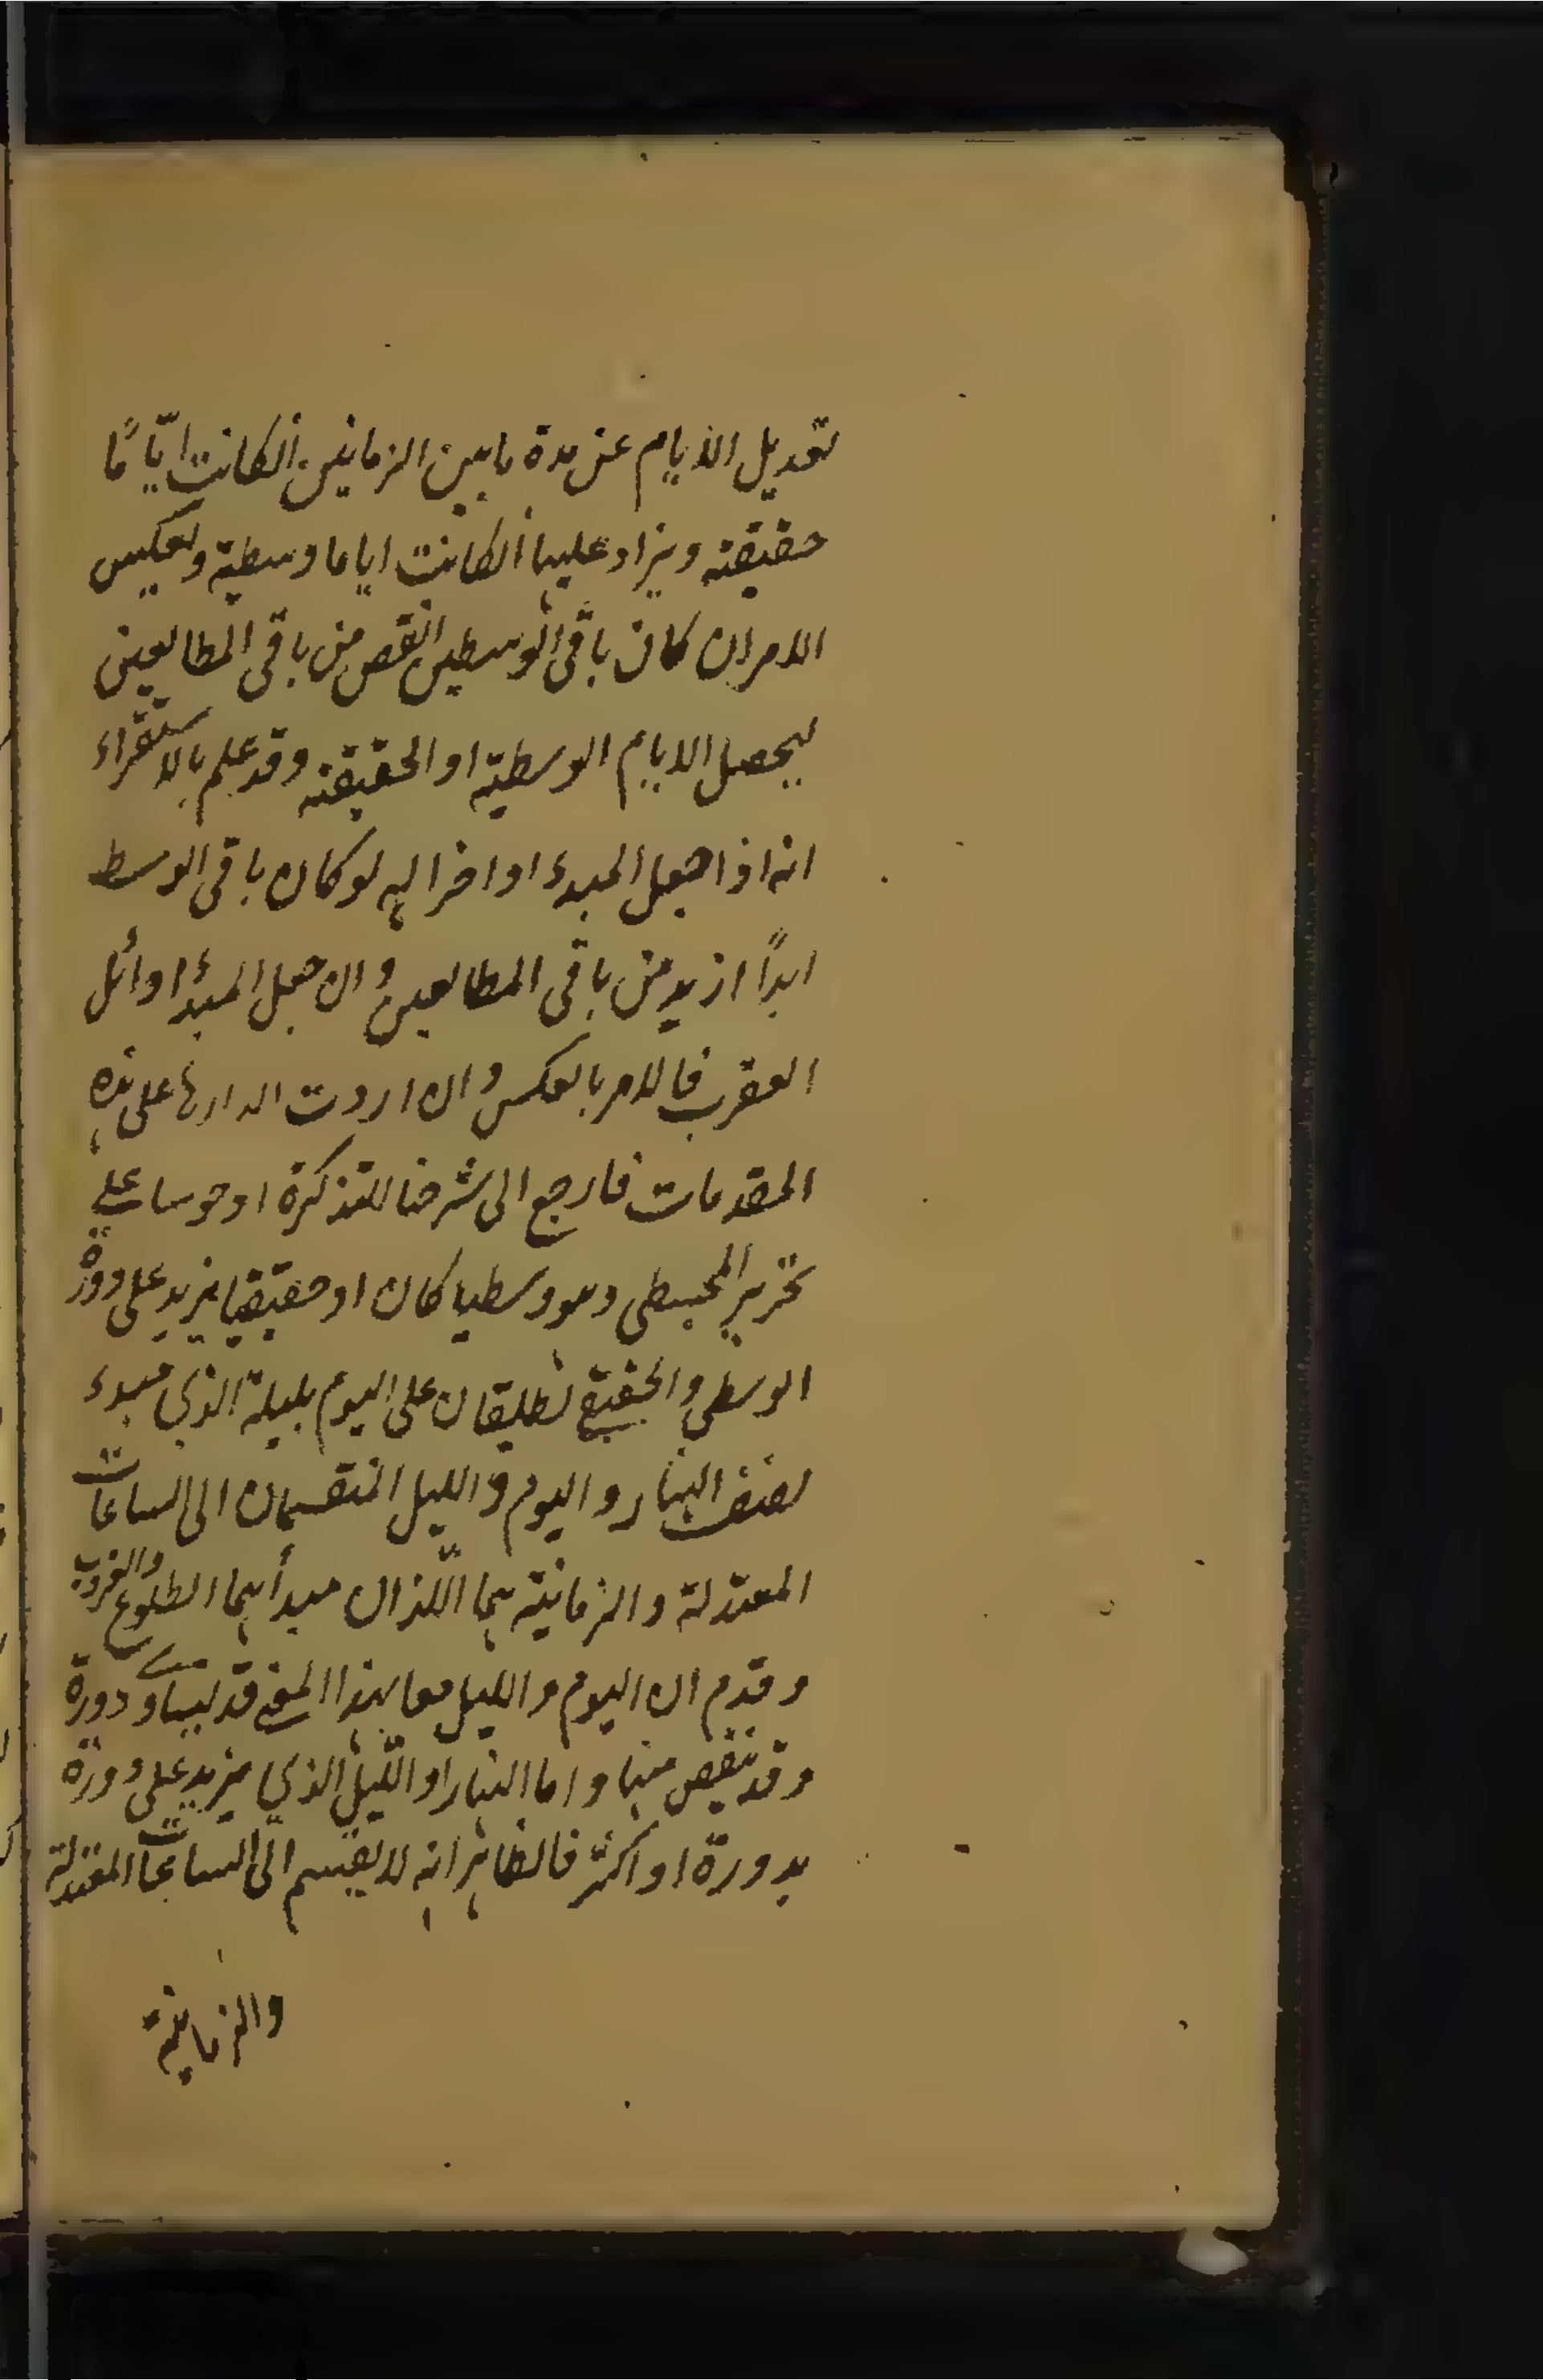 تعديل الايام عن مدة ما بين الزمانين انكانت ايّامًا
حقيقية ويزاد عليها انكانت اياما وسطية ويعكس
الامر ان كان باقى الوسطين انقص من باقى المطالعين
ليحصل الايام الوسطية او الحقيقية وقد علم بالاستقراء
انه اذا جعل المبدء اواخر لو كان باقى الوسط
ابدًا ازيد من باقى المطالعين وان جعل المبدأ اوائل
العقرب فالامر بالعكس وان اردت على هذه
المقدمات فارجع الى شرحنا للتذكرة او حواشينا على
تحرير المجسطى وهو وسطيا كان او حقيقيا يزيد على دورة
الوسطي والحقيقي تطلقان على اليوم بليلة الذي مبدء
نصف النهار واليوم والليل المنقسمان الى الساعات
المعتدلة والزمانية هما اللذان مبدأهما الطلوع والغروب
وقدم ان اليوم والليل معا بهذا المعنى قد يساوى دورة
وقد ينقص منها واما النهار او الليل الذي يزيد على دورة
بدورة او اكثر فالظاهر انه لا ينقسم الى الساعات المعتدلة
والزمانية